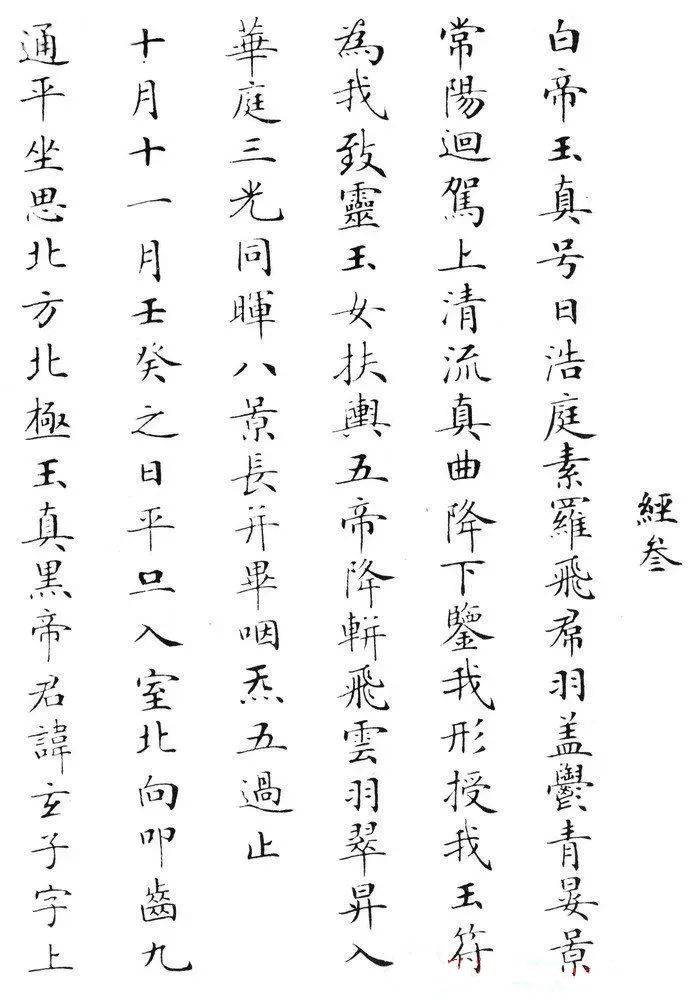 經叁
白帝玉真号曰浩庭素羅飛帬羽盖鬱青晏景
常陽迴駕上清流真曲降下鑒我形授我玉符
為我致靈玉女扶輿五帝降軿飛雲羽翠昇入
華庭三光同暉八景長并畢咽炁五過止
十月十一月壬癸之日平旦入室北向叩齒九
通平坐思北方北極玉真黑帝君諱玄子字上